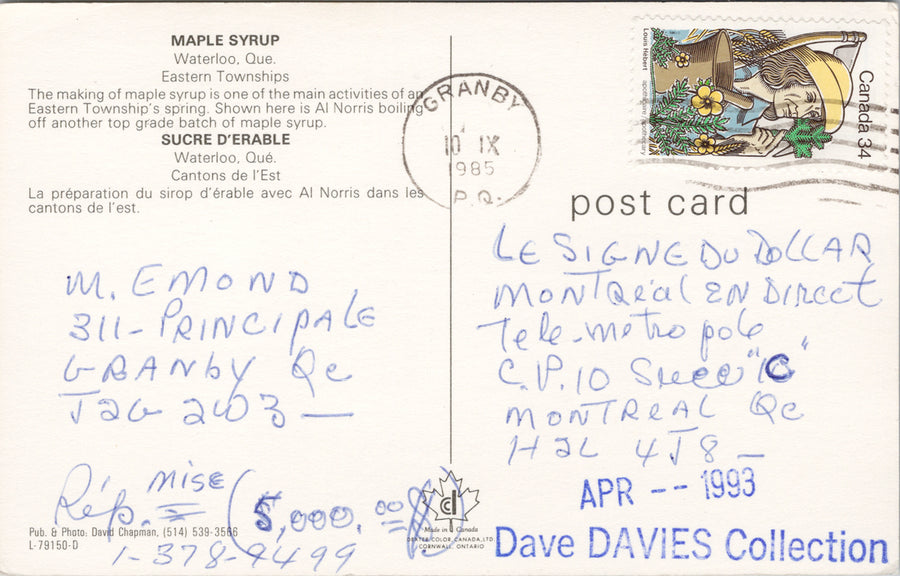 MAPLE SYRUP
Waterloo, Que.
Eastern Townships
The making of maple syrup is one of the main activities of an
Eastern Township's spring. Shown here is Al Norris boiling
off another top grade batch of maple syrup.
SUCRE D'ERABLE
Waterloo, Qué.
Cantons de l'Est
La préparation du sirop d'érable avec Al Norris dans les
cantons de l'est.
M. EMOND
311-PRINCIPALE
GRANBY Qc
J2G 2W3 —
Rép. mise (5,000.00
1-378-9499
Pub. & Photo: David Chapman, (514) 539-3566
L-79150-D
cd
Made in Canada
DEXTER COLOR CANADA, LTD.
CORNWALL, ONTARIO
GRANBY
10 IX
1985
P.Q.
Louis Hébert
apothecary
Canada 34
post card
LE SIGNE DU DOLLAR
MONTRéal EN DIRECT
Tele-metropole
C.P. 10 Succ "C"
MONTREAL Qc
H2L 4J8 —
APR -- 1993
Dave DAVIES Collection